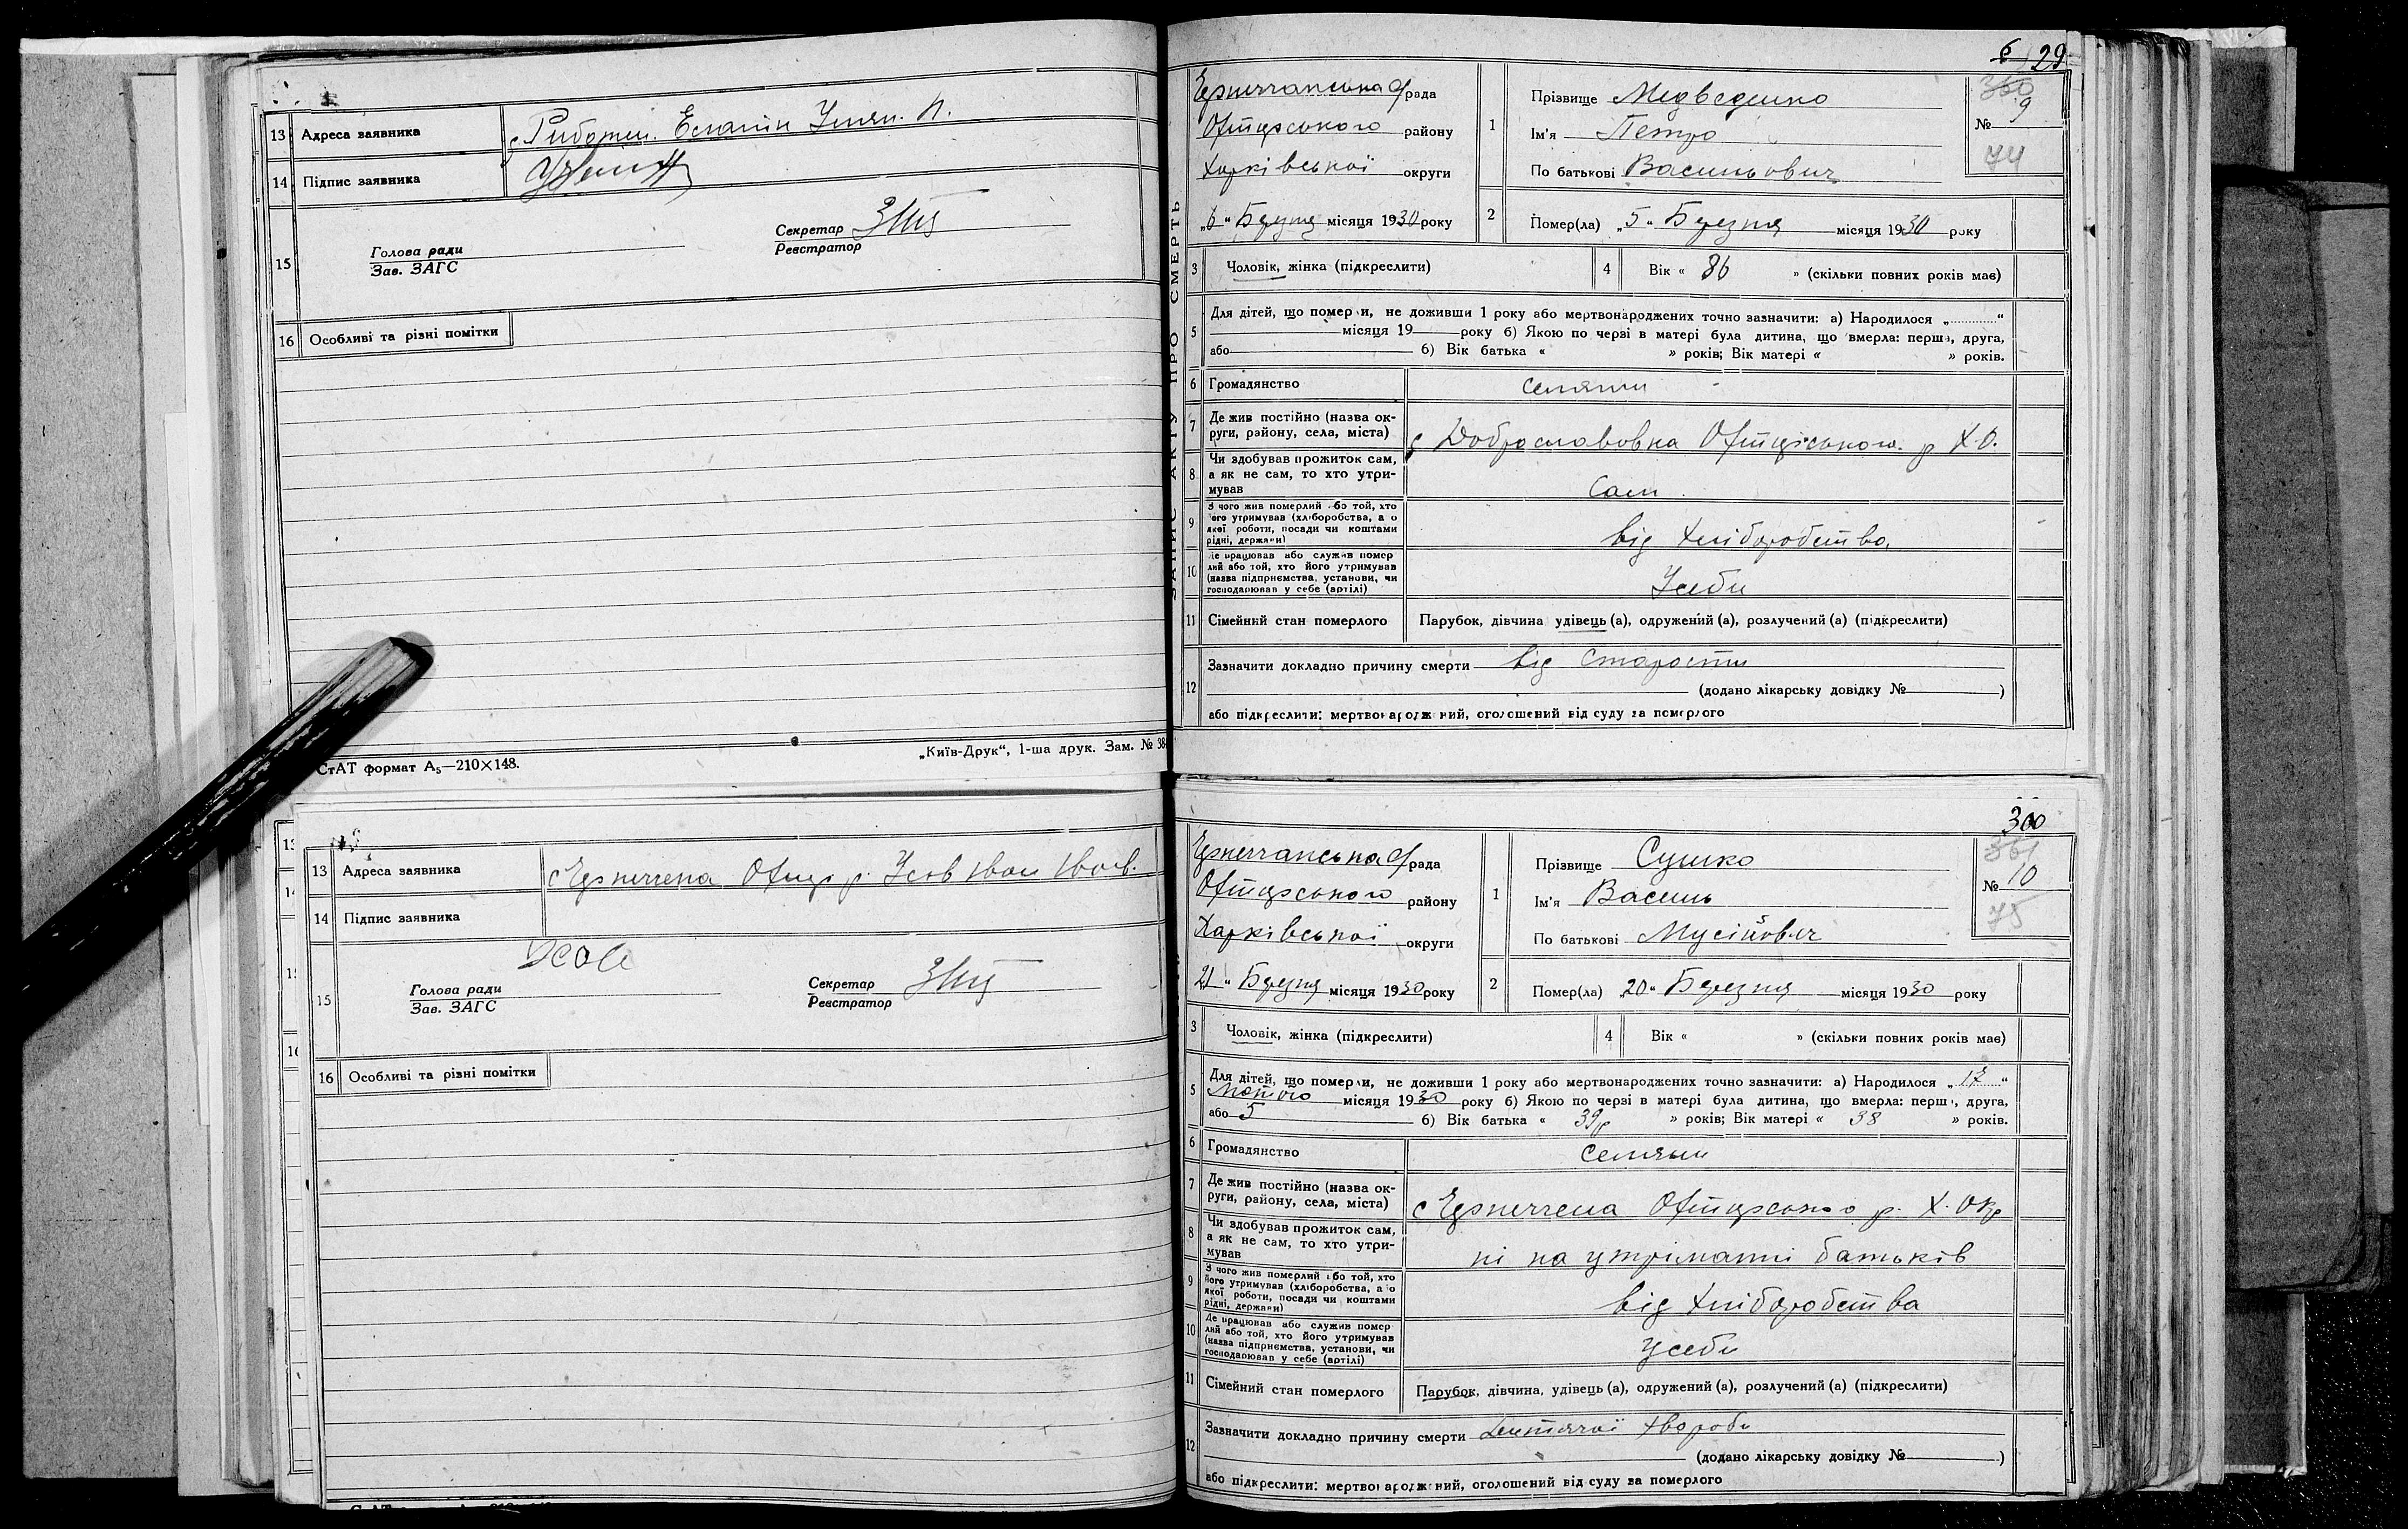 13 Адреса заявника
14 Підпис заявника
15 Голова ради
Зав. ЗАГС
Секретар
Реєстратор
16 Особливі та різні помітки
„Київ-Друк“, 1-ша друк. Зам. № 38
СтАТ формат А₅—210×148.
13 Адреса заявника с
14 Підпис заявника
15 Голова ради
Зав. ЗАГС
Секретар
Реєстратор
16 Особливі та різні помітки
29
ЗАПИС АКТУ ПРО СМЕРТЬ
рада
району
Харківської округи
„6“ Березня місяця 1930 року
1 Прізвище Медведенко
Ім'я Петро
По батькові Васильович
360
№ 9
74
2 Помер(ла) „5“ Березня місяця 1930 року
3 Чоловік, жінка (підкреслити)
4 Вік « 86 » (скільки повних років має)
5 Для дітей, що померли, не доживши 1 року або мертвонароджених точно зазначити: а) Народилося „ “
місяця 19 року б) Якою по черзі в матері була дитина, що вмерла: перша, друга,
або б) Вік батька « » років; Вік матері « » років.
6 Громадянство селянин
7 Де жив постійно (назва ок-
руги, району, села, міста) с Доброславовка р Х.О.
8 Чи здобував прожиток сам,
а як не сам, то хто утри-
мував Сам
9 З чого жив померлий або той, хто
його утримував (хліборобства, або
якої роботи, посади чи коштами
рідні, держави) від хліборобства
10 Де працював або служив помер
лий або той, хто його утримував
(назва підприємства, установи, чи
господарював у себе (артілі) Усеби
11 Сімейний стан померлого Парубок, дівчина удівець (а), одружений (а), розлучений (а) (підкреслити)
12 Зазначити докладно причину смерти від Старости
(додано лікарську довідку № )
або підкреслити: мертвонароджений, оголошений від суду за померлого
300
рада
району
Харківської округи
21 “ Березня місяця 1930 року
1 Прізвище Сушко
Ім'я Василь
По батькові Мусійович
361
№ 10
75
2 Помер(ла) „20“ Березня місяця 1930 року
3 Чоловік, жінка (підкреслити)
4 Вік « » (скільки повних років має)
5 Для дітей, що померли, не доживши 1 року або мертвонароджених точно зазначити: а) Народилося „ 17 “
Лютого місяця 1930 року б) Якою по черзі в матері була дитина, що вмерла: перша, друга,
або 5 б) Вік батька « 39р » років; Вік матері « 38 » років.
6 Громадянство Селянин
7 Де жив постійно (назва ок-
руги, району, села, міста) с р. Х. Окр
8 Чи здобував прожиток сам,
а як не сам, то хто утри-
мував ні на утріманні батьків
9 З чого жив померлий або той, хто
його утримував (хліборобства, або
якої роботи, посади чи коштами
рідні, держави) від хліборобства
10 Де працював або служив помер
лий або той, хто його утримував
(назва підприємства, установи, чи
господарював у себе (артілі) Усеби
11 Сімейний стан померлого Парубок, дівчина, удівець (а), одружений (а), розлучений (а) (підкреслити)
12 Зазначити докладно причину смерти Дитячої хвороби
(додано лікарську довідку № )
або підкреслити: мертвонароджений, оголошений від суду за померлого